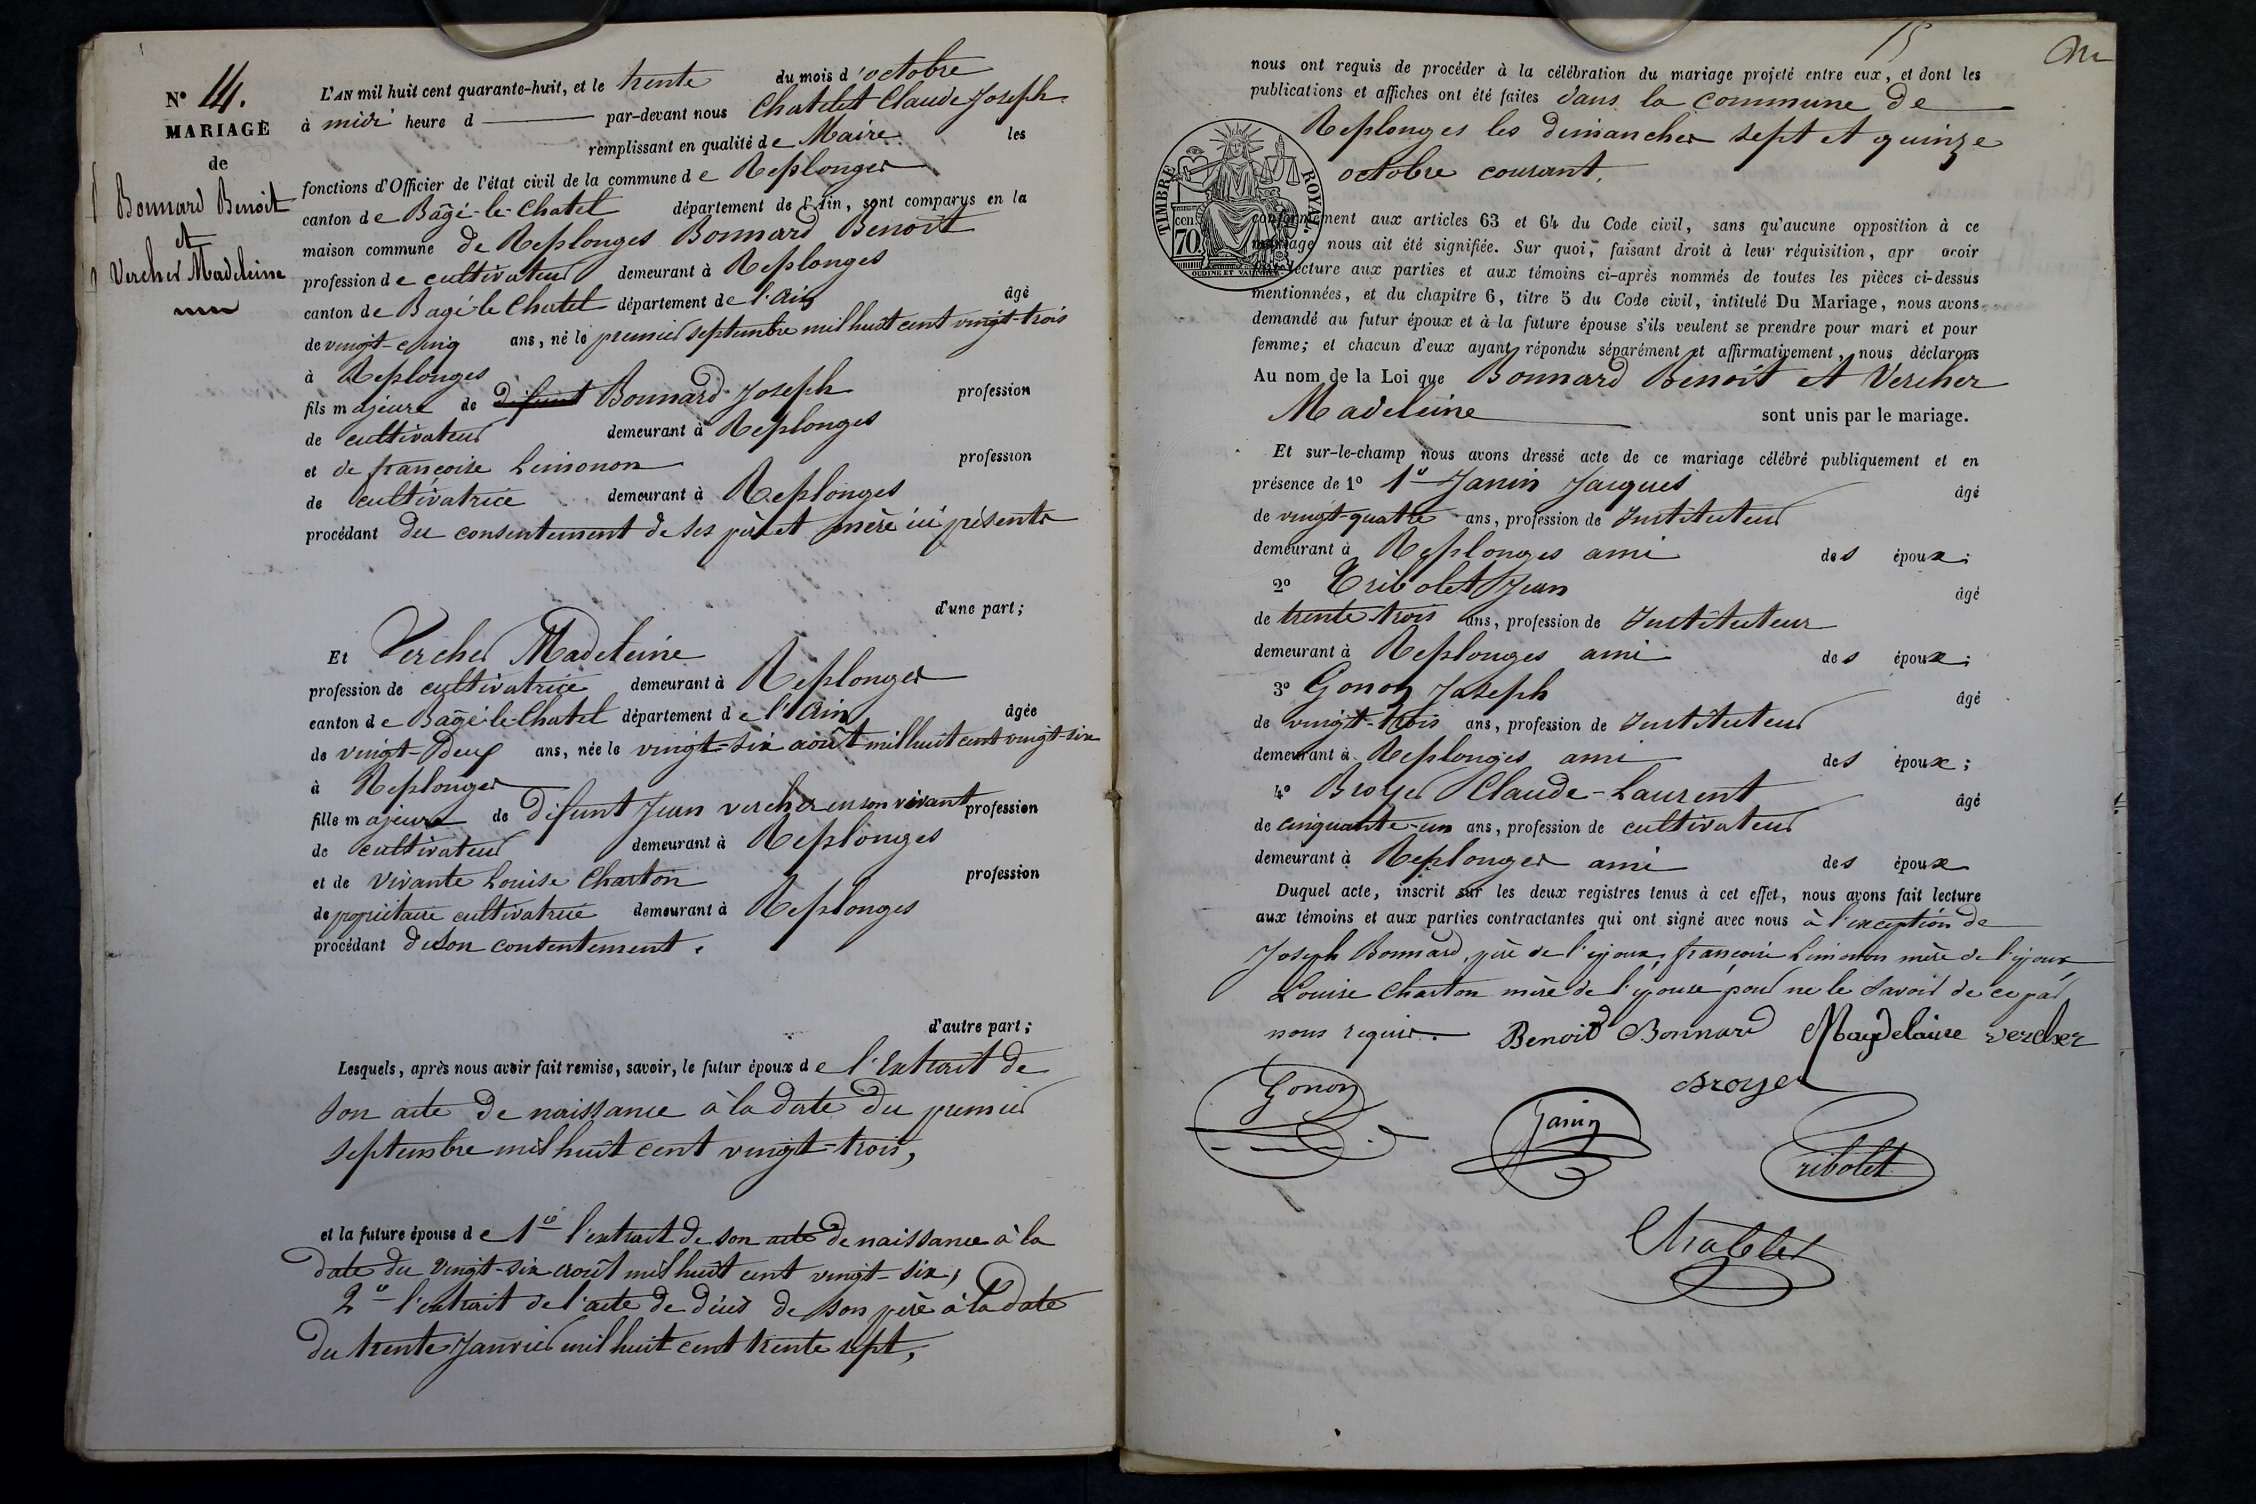 N° 14.
MARIAGE
de
Bonnard Benoit
et
Vercher Madeleine
L'AN mil huit cent quarante-huit, et le trente du mois d'octobre
à midi heure d par-devant nous Chatelet Claude Joseph
remplissant en qualité de Maire les
fonctions d'Officier de l'état civil de la commune de Replonges
canton de Bâgé-le-Chatel département de l'Ain, sont comparus en la
maison commune de Replonges Bonnard Benoit
profession de cultivateur demeurant à Replonges
canton de Bagé-le-Chatel département de l'Ain âgé
de vingt-cinq ans, né le premier septembre mil huit cent vingt-trois
à Replonges
fils majeure de défunt Bonnard Joseph profession
de cultivateur demeurant à Replonges
et de françoise Limonon profession
de cultivatrice demeurant à Replonges
procédant du consentement de ses père et mère ici présents
d'une part;
Et Vercher Madeleine
profession de cultivatrice demeurant à Replonges
canton de Bâgé-le-Chatel département de l'Ain âgée
de vingt-deux ans, née le vingt-six août mil huit cent vingt-six
à Replonges
fille majeure de défunt Jean vercher en son vivant profession
de cultivateur demeurant à Replonges
et de vivante Louise Charton profession
de propriétaire cultivatrice demeurant à Replonges
procédant de son contentement.
d'autre part;
Lesquels, après nous avoir fait remise, savoir, le futur époux de l'extrait de
son acte de naissance à la date du premier
septembre mil huit cent vingt-trois,
et la future épouse de 1° l'extrait de son acte de naissance à la
date du vingt-six août mil huit cent vingt-six,
2° l'extrait de l'acte de décès de son père à la date
du trente Janvier mil huit cent trente sept,
15
nous ont requis de procéder à la célébration du mariage projeté entre eux, et dont les
publications et affiches ont été faites dans la commune de
Replonges les dimanches sept et quinze
octobre courant.
TIMBRE ROYAL
70 cen
conformément aux articles 63 et 64 du Code civil, sans qu'aucune opposition à ce
mariage nous ait été signifiée. Sur quoi, faisant droit à leur réquisition, apr avoir
lecture aux parties et aux témoins ci-après nommés de toutes les pièces ci-dessus
mentionnées, et du chapitre 6, titre 5 du Code civil, intitulé Du Mariage, nous avons
demandé au futur époux et à la future épouse s'ils veulent se prendre pour mari et pour
femme; et chacun d'eux ayant répondu séparément et affirmativement, nous déclarons
Au nom de la Loi que Bonnard Benoit et Vercher
Madeleine sont unis par le mariage.
Et sur-le-champ nous avons dressé acte de ce mariage célébré publiquement et en
présence de 1° 1° Janin Jacques âgé
de vingt-quatre ans, profession de Instituteur
demeurant à Replonges ami des époux;
2° Tribolet Jean âgé
de trente trois ans, profession de Instituteur
demeurant à Replonges ami des époux;
3° Gonon Joseph âgé
de vingt-trois ans, profession de Instituteur
demeurant à Replonges ami des époux;
4° Broyer Claude-Laurent âgé
de cinquante-un ans, profession de cultivateur
demeurant à Replonges ami des époux
Duquel acte, inscrit sur les deux registres tenus à cet effet, nous avons fait lecture
aux témoins et aux parties contractantes qui ont signé avec nous à l'exception de
Joseph Bonnard, père de l'époux, françoise Limonon mère de l'époux,
Louise Charton mère de l'épouse pour ne le savoir de ce par
nous requis. Benoit Bonnard Magdelaine vercher
Gonon Janin Broyer
Tribolet
Chatelet